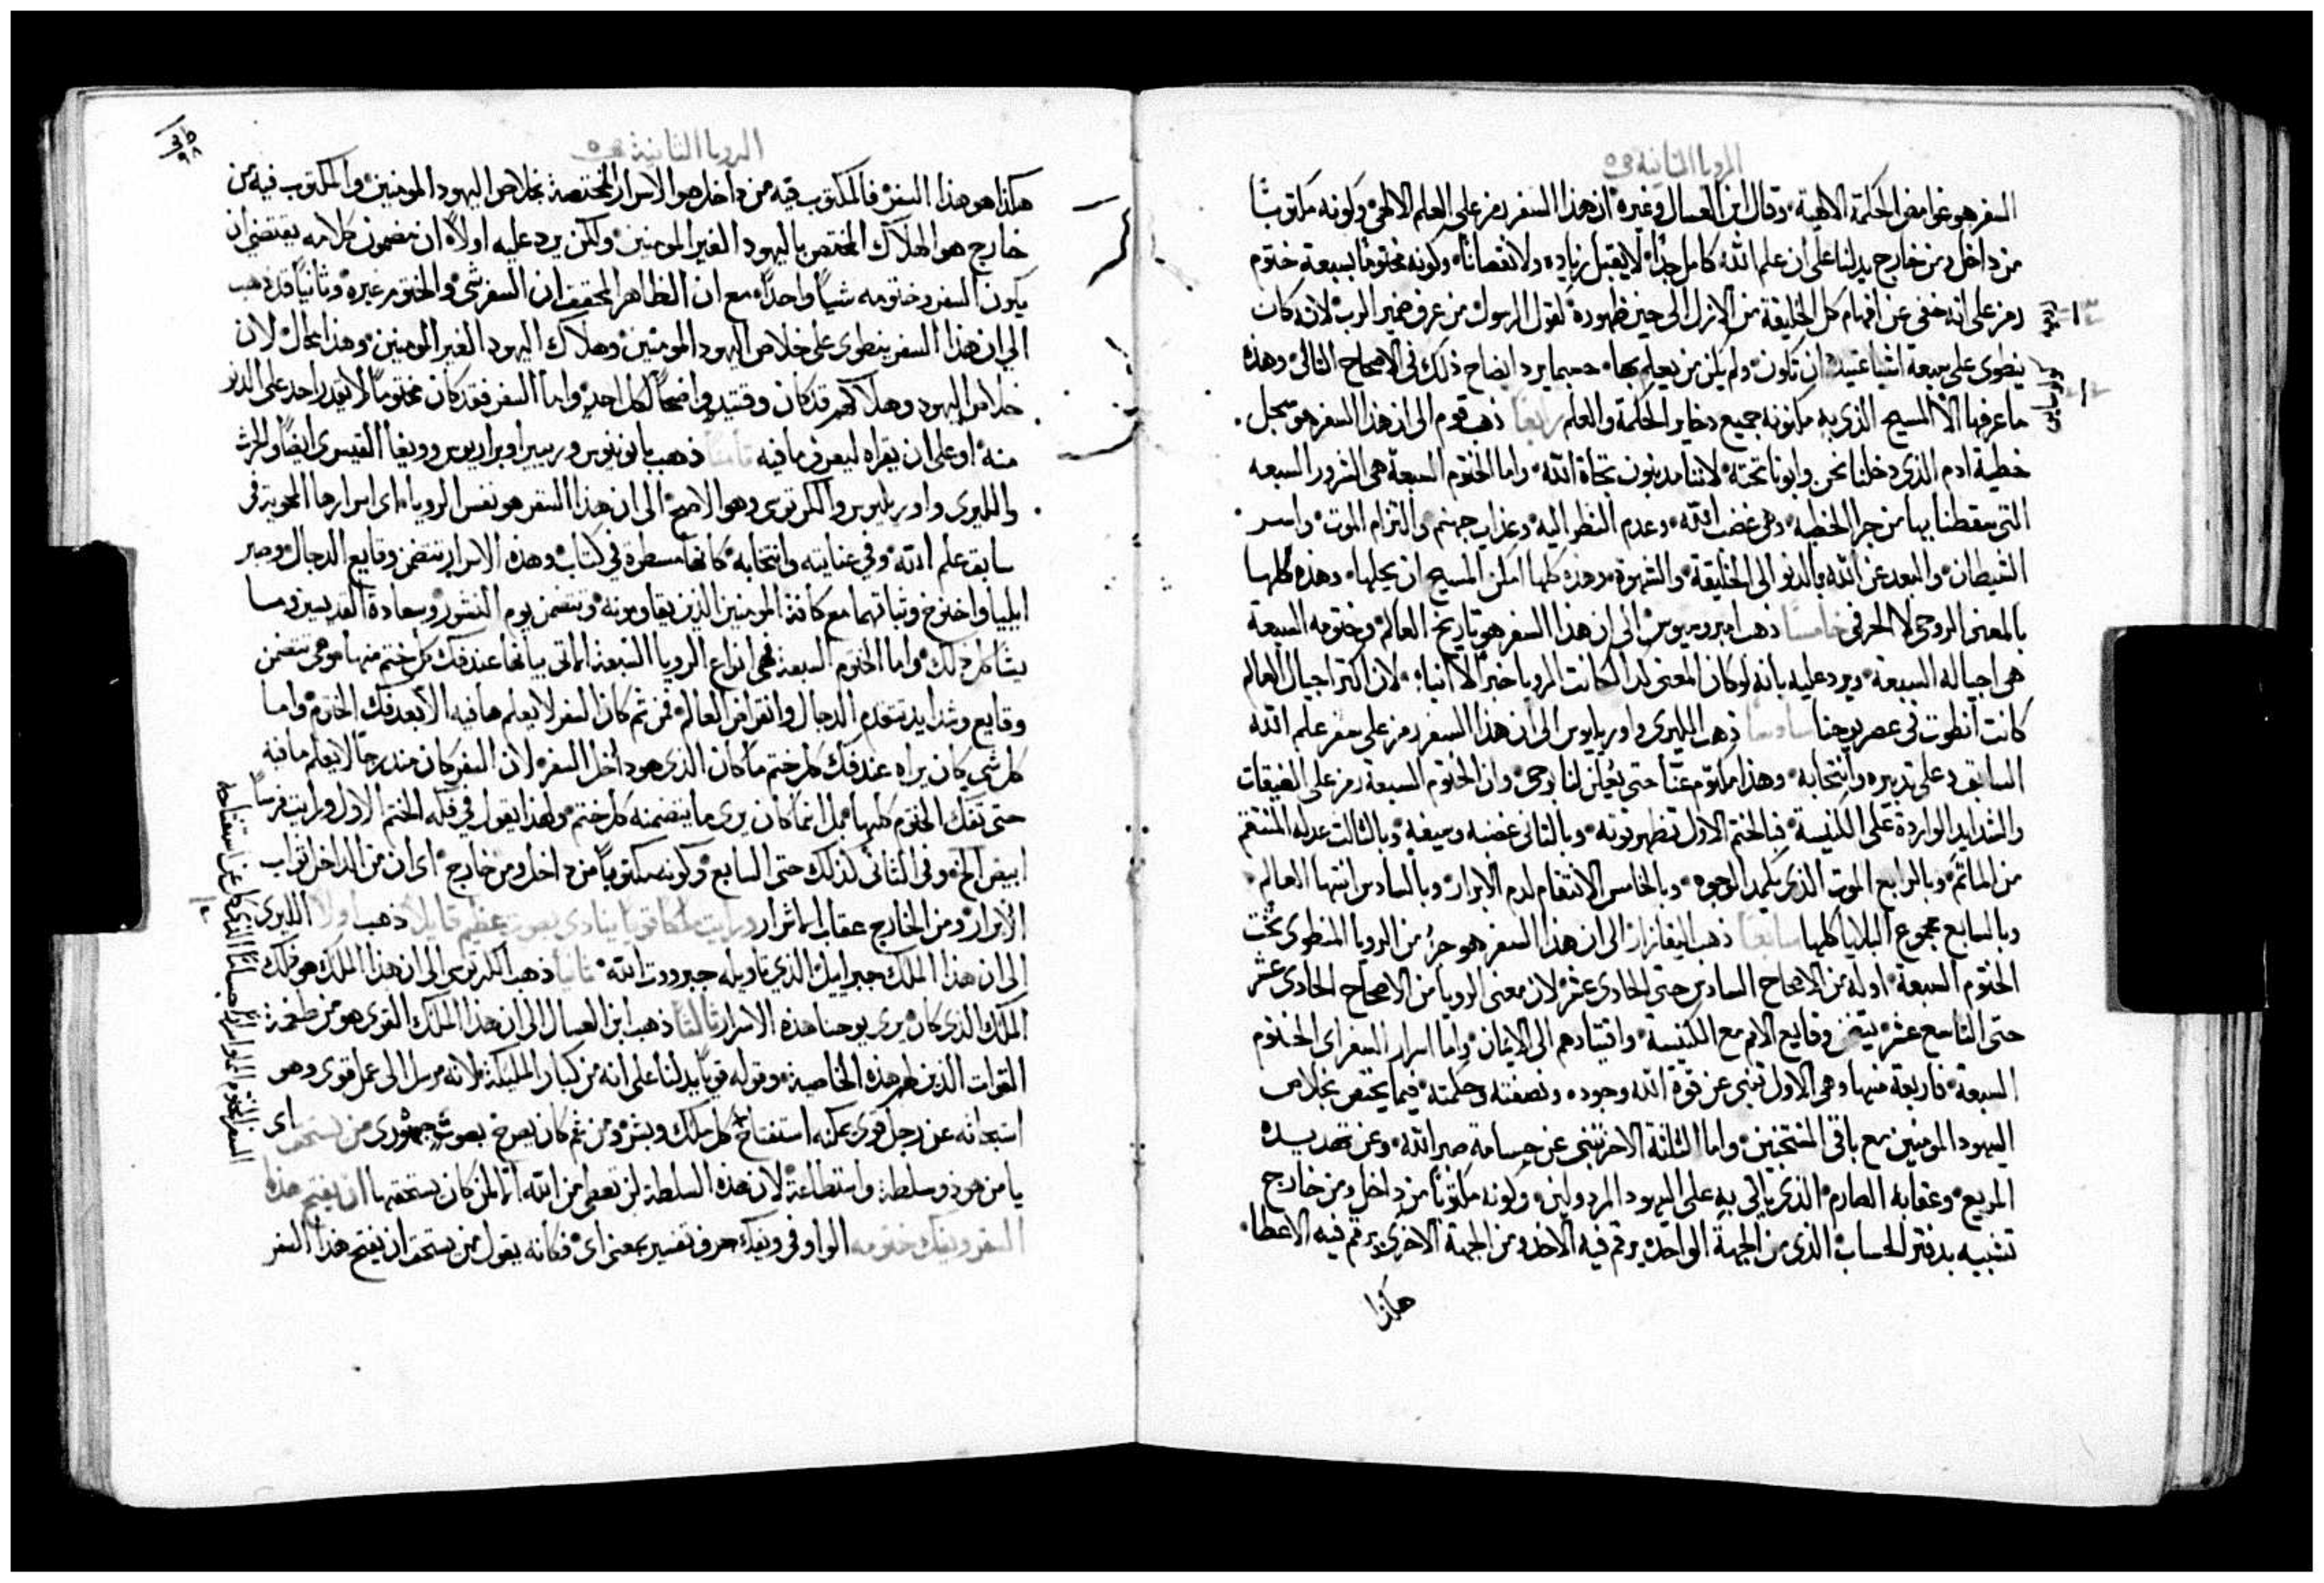 الرويا الثانية ص٥
السفر هو غوامض الحكمة الالهية وقال ابن العسال وغيره ان هذا السفر رمز على العلم الالهي وكونه مكتوبًا
من داخل ومن خارج يدلنا على ان علم الله كامل جدًا لا يقبل زياده ولا نقصانًا وكونه مختومًا بسبعة ختوم
رمز على انه خفي عن افهام كل الخليقة من الازل الى حين ظهوره كقول الرسول من عرف ضمير الرب لانه كان
ينطوي على سبعة اشيا عتيدة ان تكون ولم يكن من يعلم بها حسبما يرد ايضاح ذلك في الاصحاح التالي وهذه
ما عرفها الا المسيح الذي به مكنونه جميع دخاير الحكمة والعلم رابعًا ذهب قوم الى ان هذا السفر هو سجل
خطية ادم الذي دخلنا نحن وابونا تحته لاننا مديونون تجاة الله واما الختوم السبعة هي الشرور السبعه
التي سقطنا بها من جرا الخطيه وهي غضب الله وعدم النظر اليه وعذاب جهنم والتزام الموت واسر
الشيطان والبعد عن الله والدنو الى الخليقة والشهوة وهذه كلها امكن المسيح ان يحلها وهذه كلها
بالمعنى الروحي لا الحرفي خامسًا ذهب امبروسيوس الى ان هذا السفر هو تاريخ العالم وختومه السبعة
هي اجياله السبعة ويرد عليه بانه لو كان المعنى كذا لكانت الرويا خبرًا لا انباء لان اكثر اجيال العالم
كانت انطوت في عصر يوحنا سادسًا ذهب الليري واوريليوس الى ان هذا السفر رمز على سفر علم الله
السابق وعلى تدبيره وانتخابه وهذا مكتوم عنّا حتى يُعلن لنا بوحي وان الختوم السبعة رمز على الضيقات
والشدايد الواردة على الكنيسة فبالختم الاول تظهر قوته وبالثاني غضبه وسيفه وبالثالث عدله المنتقم
من الماثم وبالرابع الموت الذي يكمد الوجوه وبالخامس الانتقام لدم الابرار وبالسادس انتها العالم
وبالسابع مجموع البلايا كلها سابعًا ذهب اليغازار الى ان هذا السفر هو جزُ من الرويا المنطوي تحت
الختوم السبعة اوله من الاصحاح السادس حتى الحادي عشر لان معنى الرويا من الاصحاح الحادي عشر
حتى التاسع عشر يتضمن وقايع الامم مع الكنيسة واقتيادهم الى الايمان واما اسرار السفر اي الختوم
السبعة فاربعة منها وهي الاول تنبي عن قوة الله وجوده ونصفته وحكمته فيما يختص بخلاص
اليهود المومنين مع باقي المنتخبين واما الثلثة الاخر تنبي عن جسامة صبر الله وعن تهديده
المريع وعقابه الصارم الذي ياتي به على اليهود المردولين وكونه مكتوبًا من داخل ومن خارج
تشبيه بدفتر الحساب الذي من الجهة الواحدة يرقم فيه الاخذ ومن الجهة الاخرى يرقم فيه الاعطا
هكذا
الرويا الثانية ص٥
٩٨
هكذا هو هذا السفر فالمكتوب فيه من داخل هو الاسرار المختصة بخلاص اليهود المومنين والمكتوب فيه من
خارج هو الهلاك المختص باليهود الغير المومنين ولكن يرد عليه اولاً ان مضمون كلامه يقتضي ان
يكون السفر وختومه شياً واحدًا مع ان الظاهر المحقق ان السفر شي والختوم غيره وثانيًا قد ذهب
الى ان هذا السفر ينطوي على خلاص اليهود المومنين وهلاك اليهود الغير المومنين وهذا محال لان
خلاص اليهود وهلاكهم قد كان وقتيدٍ واضحًا لكل احدٍ واما السفر فقد كان مختومًا لا يقدر احد على الدنو
منه او على ان يقراه ليعرف ما فيه ثامنًا ذهب بانونيوس وربيرا وبراريوس وويغا القيسري ايضًا والحرث
والليري واوريليوس والكرتوسي وهو الاصح الى ان هذا السفر هو نفس الرويا اي اسرارها المحوية في
سابق علم الله وفي عنايته وانتخابه كانها مسطرة في كتاب وهذه الاسرار تتضمن وقايع الدجال وصبر
ايليا واخنوخ وثباتهما مع كافة المومنين الذين يقاومونه وتتضمن يوم النشور وسعادة القديسين وما
يشاكل ذلك واما الختوم السبعة فهي انواع الرويا السبعة الماتي بيانها عند فك كل ختم منها وهي تتضمن
وقايع وشدايد تتقدم الدجال وانقراض العالم فمن ثم كان السفر لا يعلم ما فيه الا بعد فك الختوم واما
كل شي كان يراه عند فك كل ختم ما كان الذي هو داخل السفر لان السفر كان مندرجًا لا يعلم ما فيه
حتى تفك الختوم كلها بل انما كان يرى ما يتضمنه كل ختم ولهذا يقول في فكه الختم الاول ورايت فرسًا
ابيض الخ وفي الثاني كذلك حتى السابع وكونه مكتوبًا من داخل ومن خارج اي ان من الداخل ثواب
الابرار ومن الخارج عقاب الاشرار ورايت ملاكا قويًا ينادي بصوت عظيم قايلاً ذهب اولاً الليري
الى ان هذا الملك جبراييل الذي تاويله جبروت الله ثانيًا ذهب الكرتوسي الى ان هذا الملك هو ذلك
الملك الذي كان يري يوحنا هذه الاسرار ثالثًا ذهب ابن العسال الى ان هذا الملك القوي هو من طغمة
القوات الذين لهم هذه الخاصية وقوله قويًا يدلنا على انه من كبار المليكة لانه مرسل الى عمل قوي وهو
استبحاثه عن رجل قوي يمكنه استفتاح كل ملك وبشر ومن ثم كان يصرخ بصوتٍ جهوري من يستحق اي
يا من هو ذو سلطة واستطاعة لان هذه السلطة لن تعطى من الله الا لمن كان يستحقها ان يفتح هذا
السفر ويفك ختومه الواو في ويفك حرف تفسير بمعنى اي فكانه يقول من يستحق ان يفتح هذا السفر